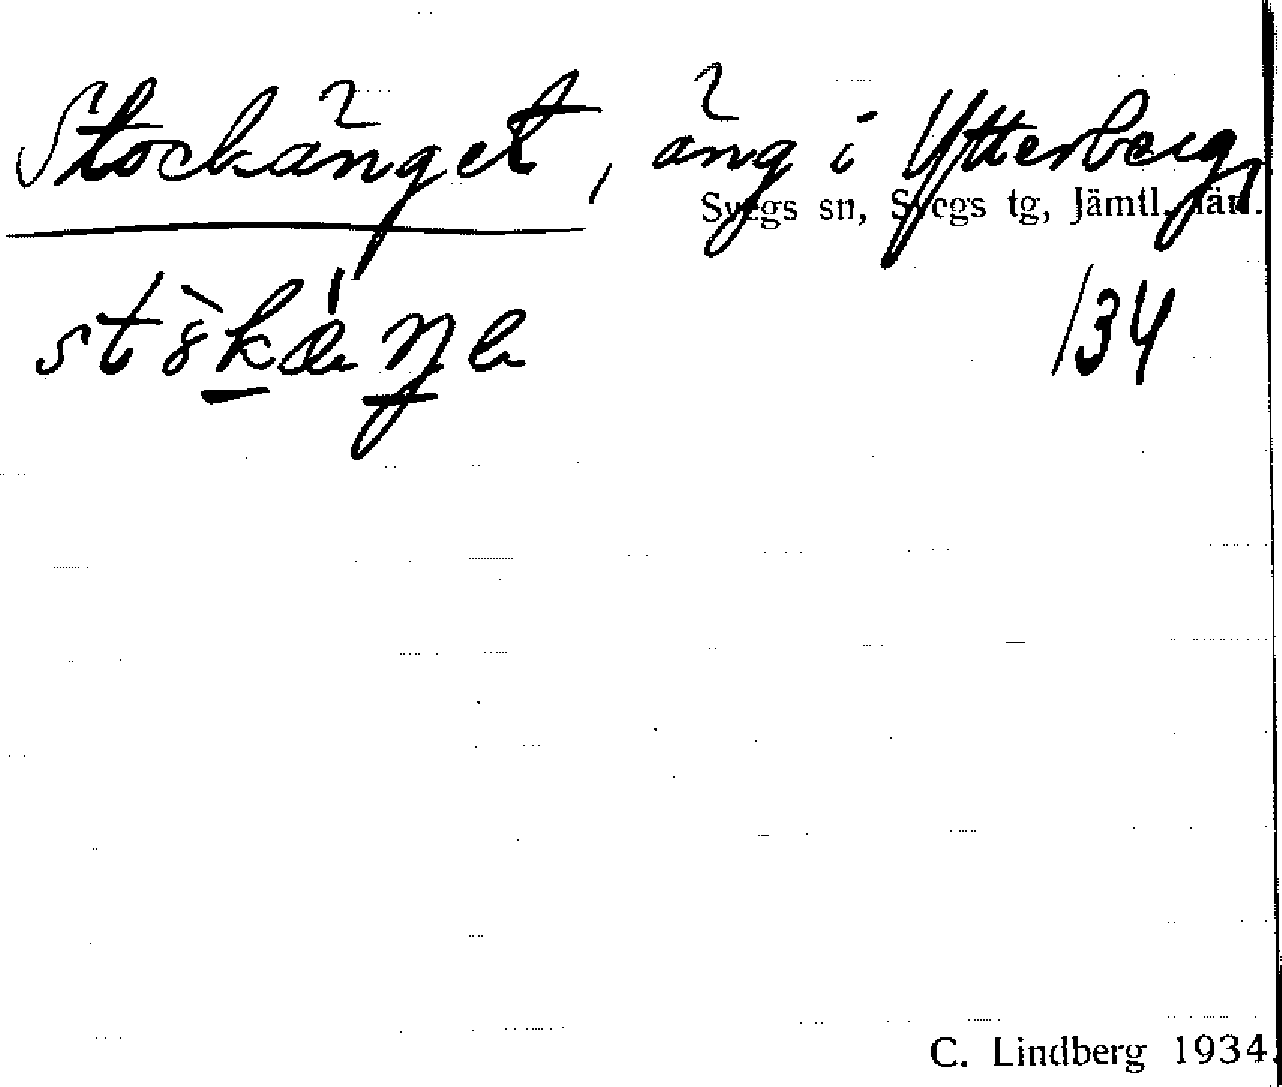 Stockänget, äng i Ytterberg,
Svegs sn, Svegs tg, Jämtl. län.
/34
C. Lindberg 1934.